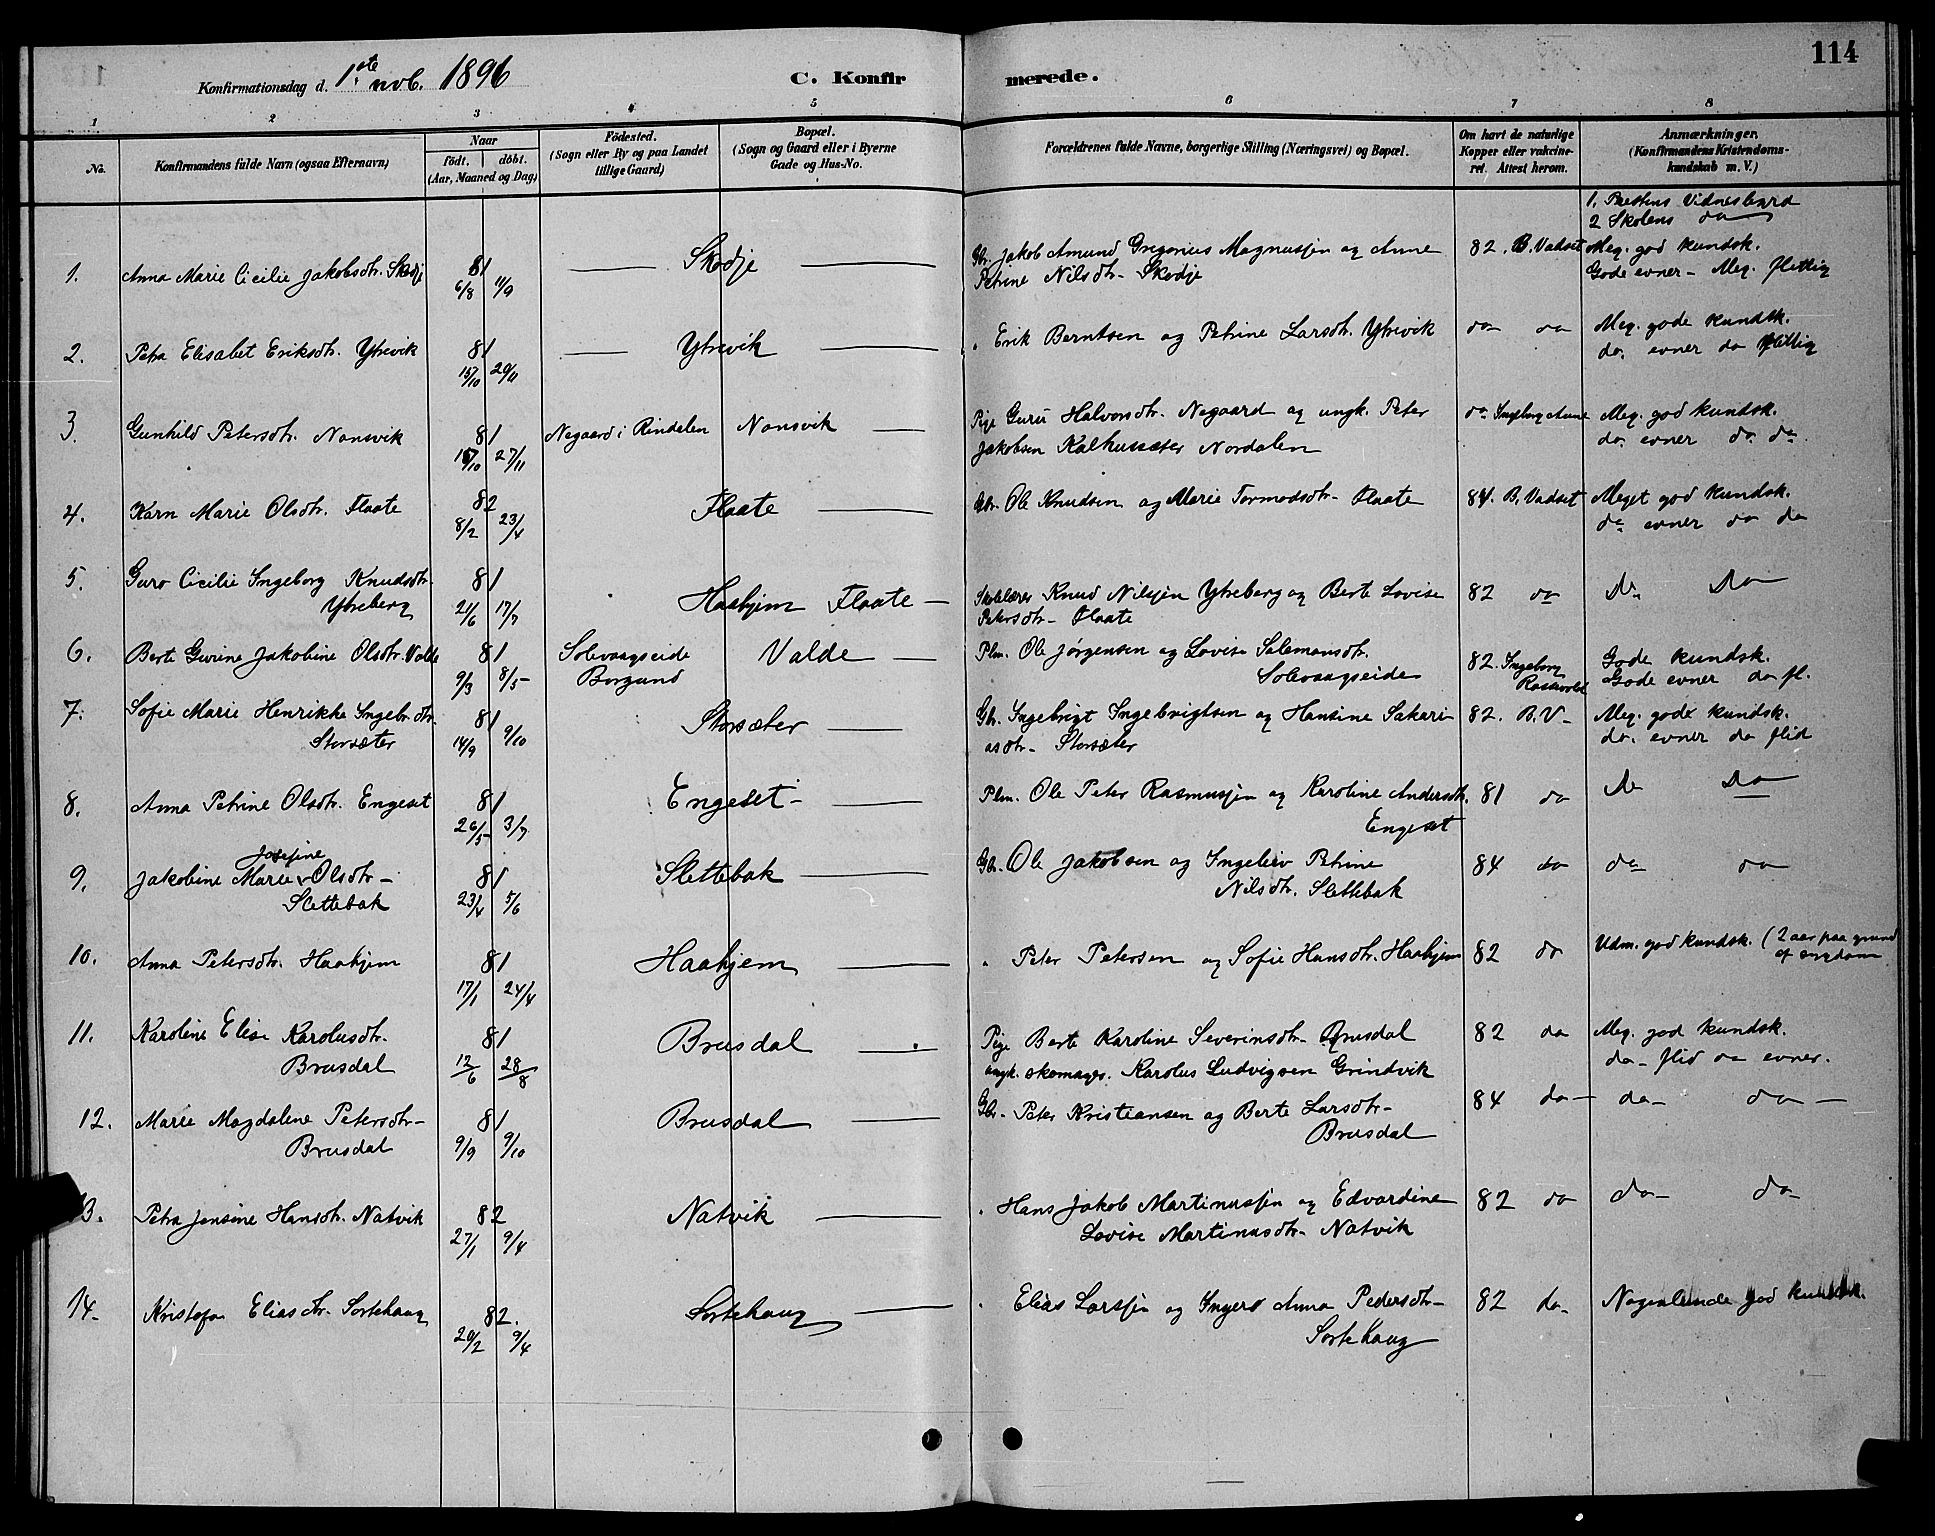 114
Konfirmationsdag d. 1.ste novb. 1896
C. Konfirmerede.
1 2 3 4 5 6 7 8
No.
Konfirmandens fulde Navn (ogsaa Efternavn)
Naar
födt. döbt.
(Aar, Maaned og Dag)
Födested.
(Sogn eller By og paa Landet
tillige Gaard)
Bopæl.
(Sogn og Gaard eller i Byerne
Gade og Hus-No.
Forældrenes fulde Navne, borgerlige Stilling (Næringsvei) og Bopæl.
Om havt de naturlige
Kopper eller vakcine-
ret. Attest herom.
Anmærkninger.
(Konfirmandens Kristendoms-
kundskab m. V.)
1. Prestens Vidnesbyrd
2 Skolens do
1. Anna Marie Cicilie Jakobsdtr. Skodje 81 6/8 11/9 Skodje
Gbr. Jakob Amund Gregorius Magnussen og Anne
Petrine Nilsdtr. Skodje
82. B. Vadset Meg. god kundsk.
Gode evner - Meg. flittig
2. Petra Elisabet Eriksdtr. Ytrevik 81 15/10 20/11 Ytrevik
" Erik Berntsen og Petrine Larsdtr. Ytrevik
do do Meg. gode kundsk.
do. evner do flittig
3. Gunhild Petersdtr. Nonsvik 81 27/11 Negaard i Rindalen Nonsvik
Pige Guru Halvorsdtr. Negaard og ungk. Peter
Jakobsen Kalhussæter Nordalen
do Ingeborg Aune Meg. god kundsk.
do. evner do do.
4. Karn Marie Olsdtr. Flaate 82 8/2 23/4 Flaate
Gbr. Ole Knudsen og Marie Tormodsdtr. Flaate
84. B. Vadset Meget god kundsk.
do evner do do
5. Guro Cicilie Ingeborg Knudsdtr.
Ytreberg 81 21/6 17/7 Haahjem Flaate
Skolelærer Knud Nilsen Ytreberg og Berte Lovise
Petersdtr. Flaate
82 do Do Do
6. Berte Gurine Jakobine Olsdtr. Valde 81 9/3 8/5 Solevaagseide
Borgund Valde
Plm. Ole Jørgensen og Lovise Salemonsdtr.
Solevaagseide
82. Ingeborg Gode kundsk.
Gode evner do fl.
7. Sofie Marie Henrikke Ingebr.dtr.
Storsæter 81 14/9 9/10 Storsæter
Gbr. Ingebrigt Ingebrigtsen og Hansine Sakari-
asdtr. Storsæter
82. B. V- Meg. gode kundsk.
do. evner do flid
8. Anna Petrine Olsdtr. Engeset 81 26/5 3/7 Engeset
Plm. Ole Peter Rasmussen og Karoline Andersdtr.
Engeset
81 do Do Do
9. Jakobine Marie Josefine Olsdtr.
Slettebak 81 23/4 5/6 Slettebak
Gbr. Ole Jakobsen og Ingeborg Petrine
Nilsdtr. Slettebak
84 do do do
10. Anna Petersdtr. Haahjem 81 17/1 24/4 Haahjem
" Peter Petersen og Sofie Hansdtr. Haahjem
82 do Udm. god kundsk. (2 aar paa grund
af sygdom
11. Karoline Elise Karolusdtr.
Brusdal 81 12/6 28/8 Brusdal
Pige Berte Karoline Severinsdtr. Brusdal
ungk. skomager. Karolus Ludvigsen Grindvik
82 do Meg. god kundsk.
do - flid do evner.
12. Marie Magdalene Petersdtr.
Brusdal 81 9/9 9/10 Brusdal
Gbr. Peter Kristiansen og Berte Larsdtr.
Brusdal
84 do do do
13. Petra Jensine Hansdtr. Natvik 82 27/1 9/4 Natvik
" Hans Jakob Martinussen og Edvardine
Lovise Martinusdtr. Natvik
82 do do do
14. Kristofa Eliasdtr. Sortehaug 82. 20/2 9/4 Sortehaug
" Elias Larssen og Ingerd Anna Pedersdtr.
Sortehaug
82 do Nogenlunde god kundsk.